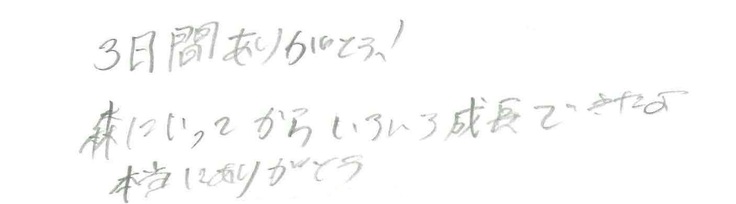 3日間ありがとう!
森にいってからいろいろ成長できたよ
本当にありがとう